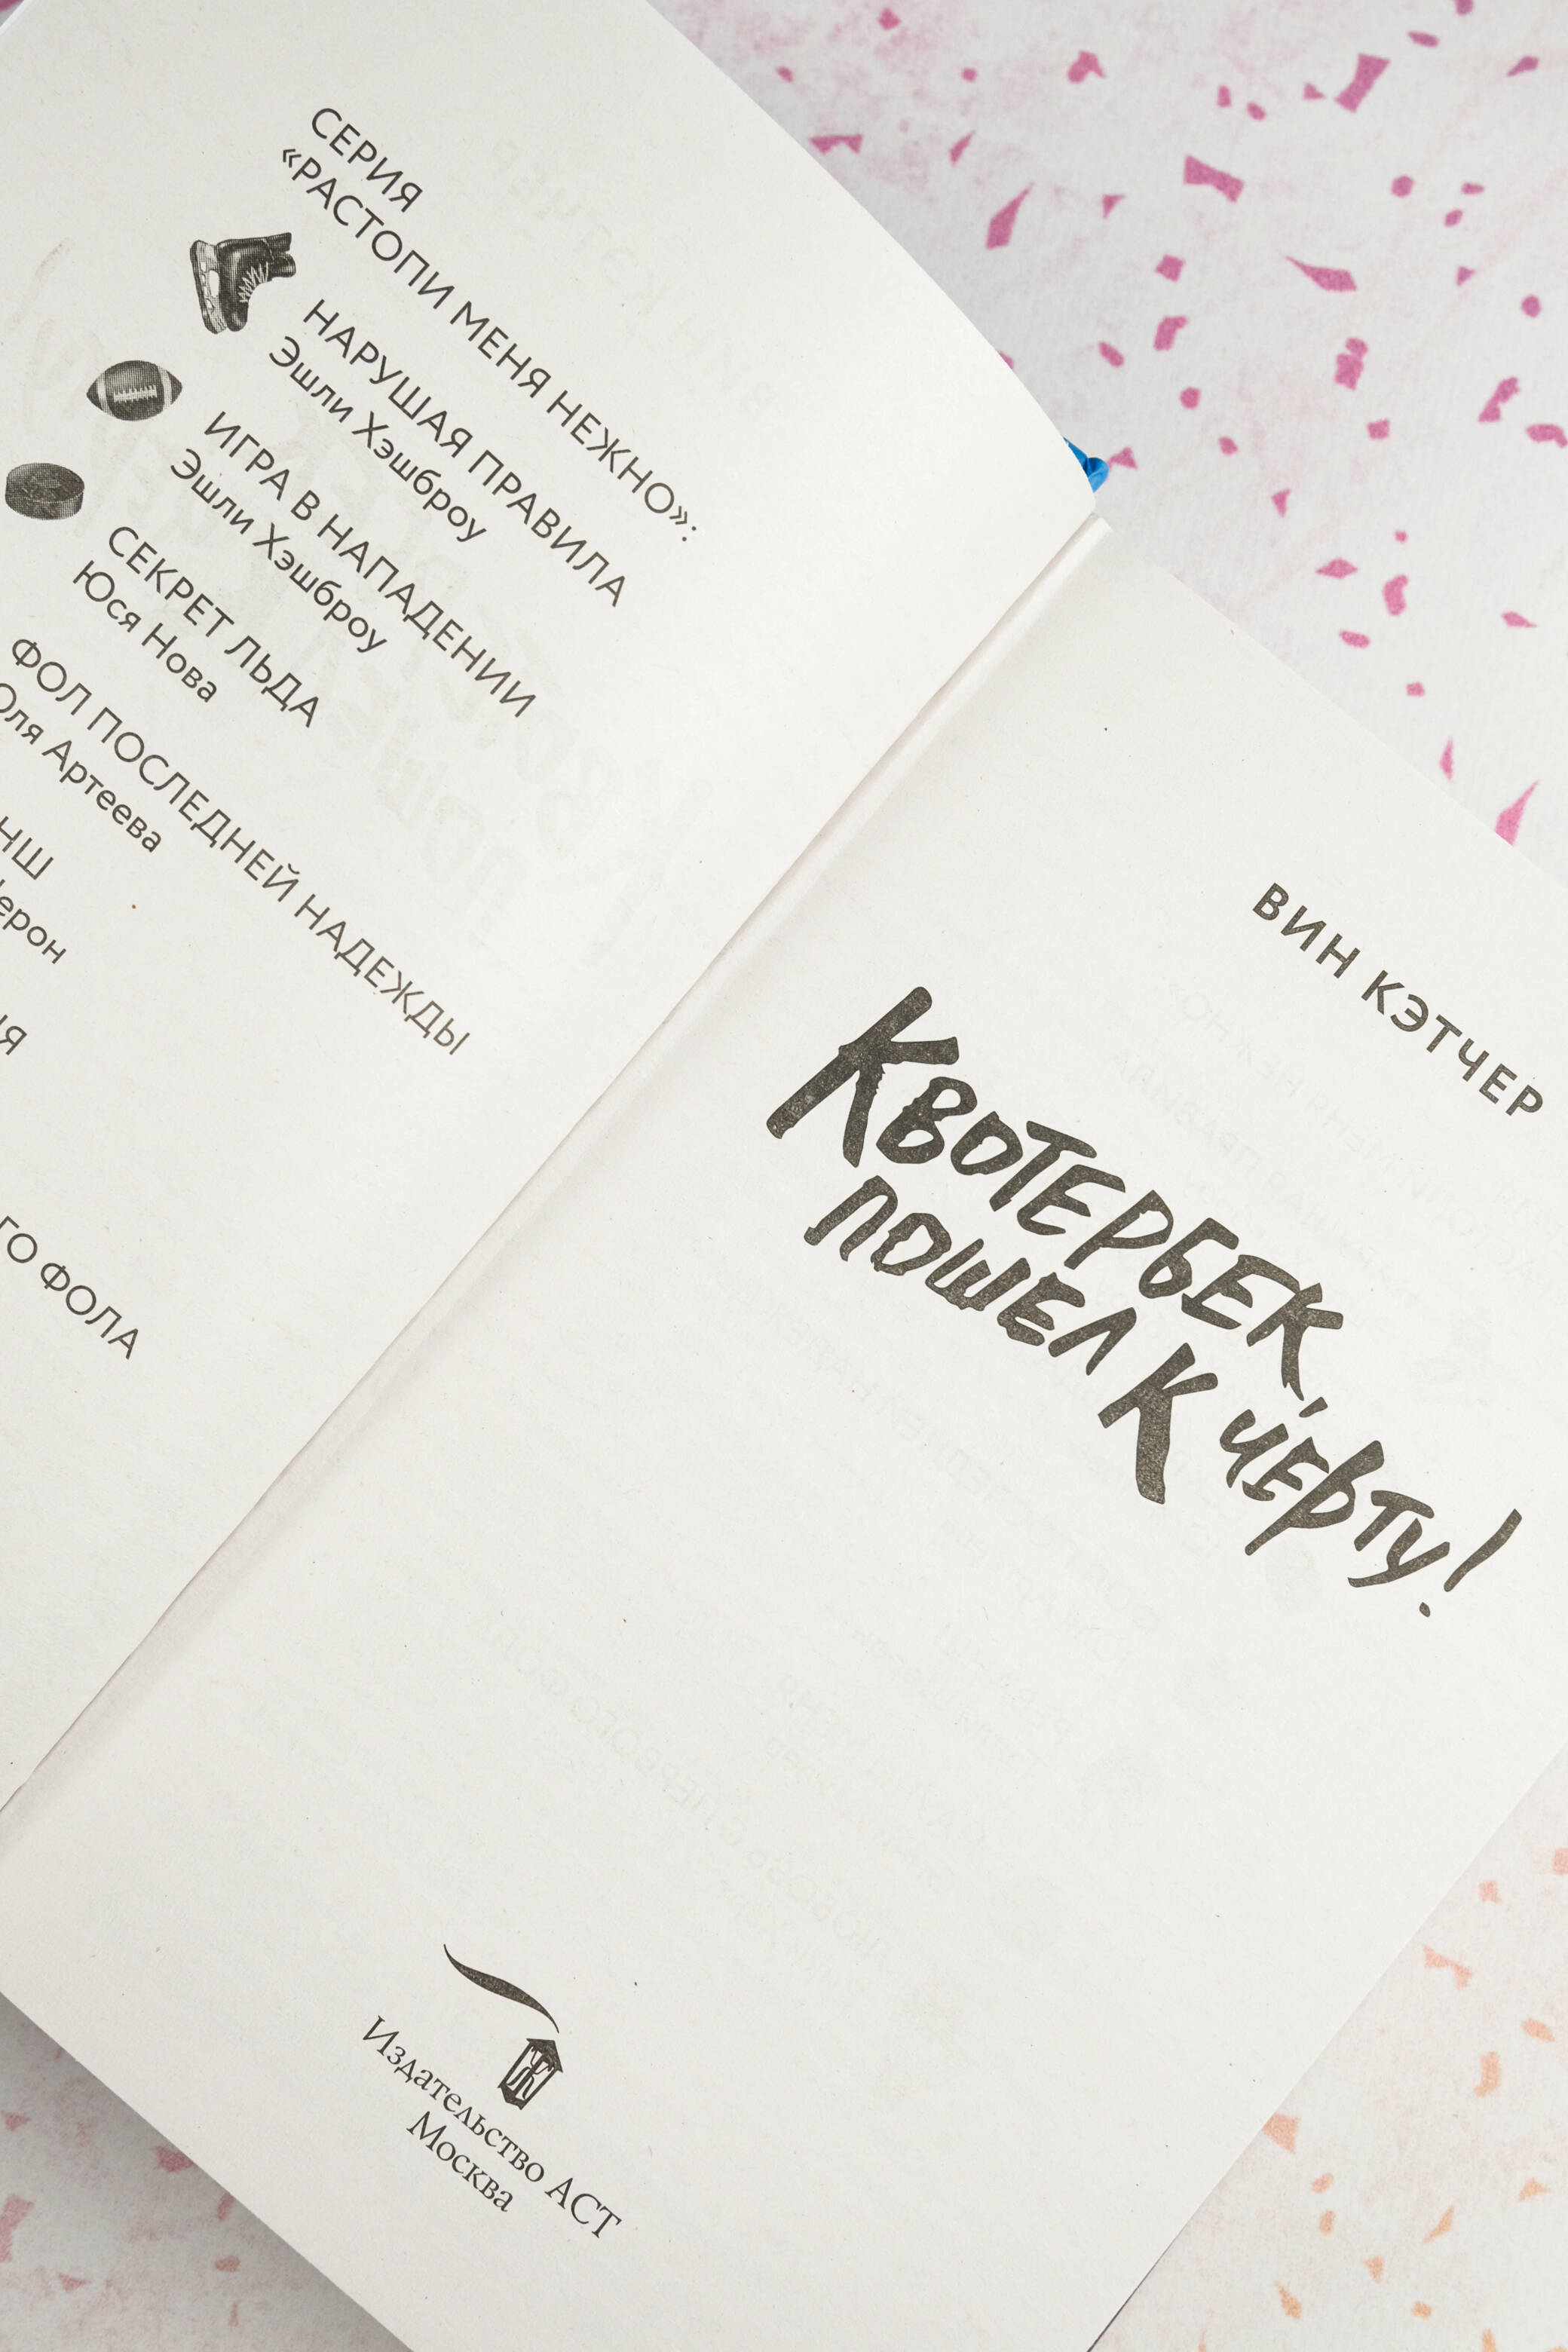 СЕРИЯ
«РАСТОПИ МЕНЯ НЕЖНО»:
НАРУШАЯ ПРАВИЛА
Эшли Хэшброу
ИГРА В НАПАДЕНИИ
Эшли Хэшброу
СЕКРЕТ ЛЬДА
Юся Нова
ФОЛ ПОСЛЕДНЕЙ НАДЕЖДЫ
Оля Артеева
ФОЛА
ВИН КЭТЧЕР
КВОТЕРБЕК,
ПОШЕЛ К ЧЕРТУ!
Издательство АСТ
Москва